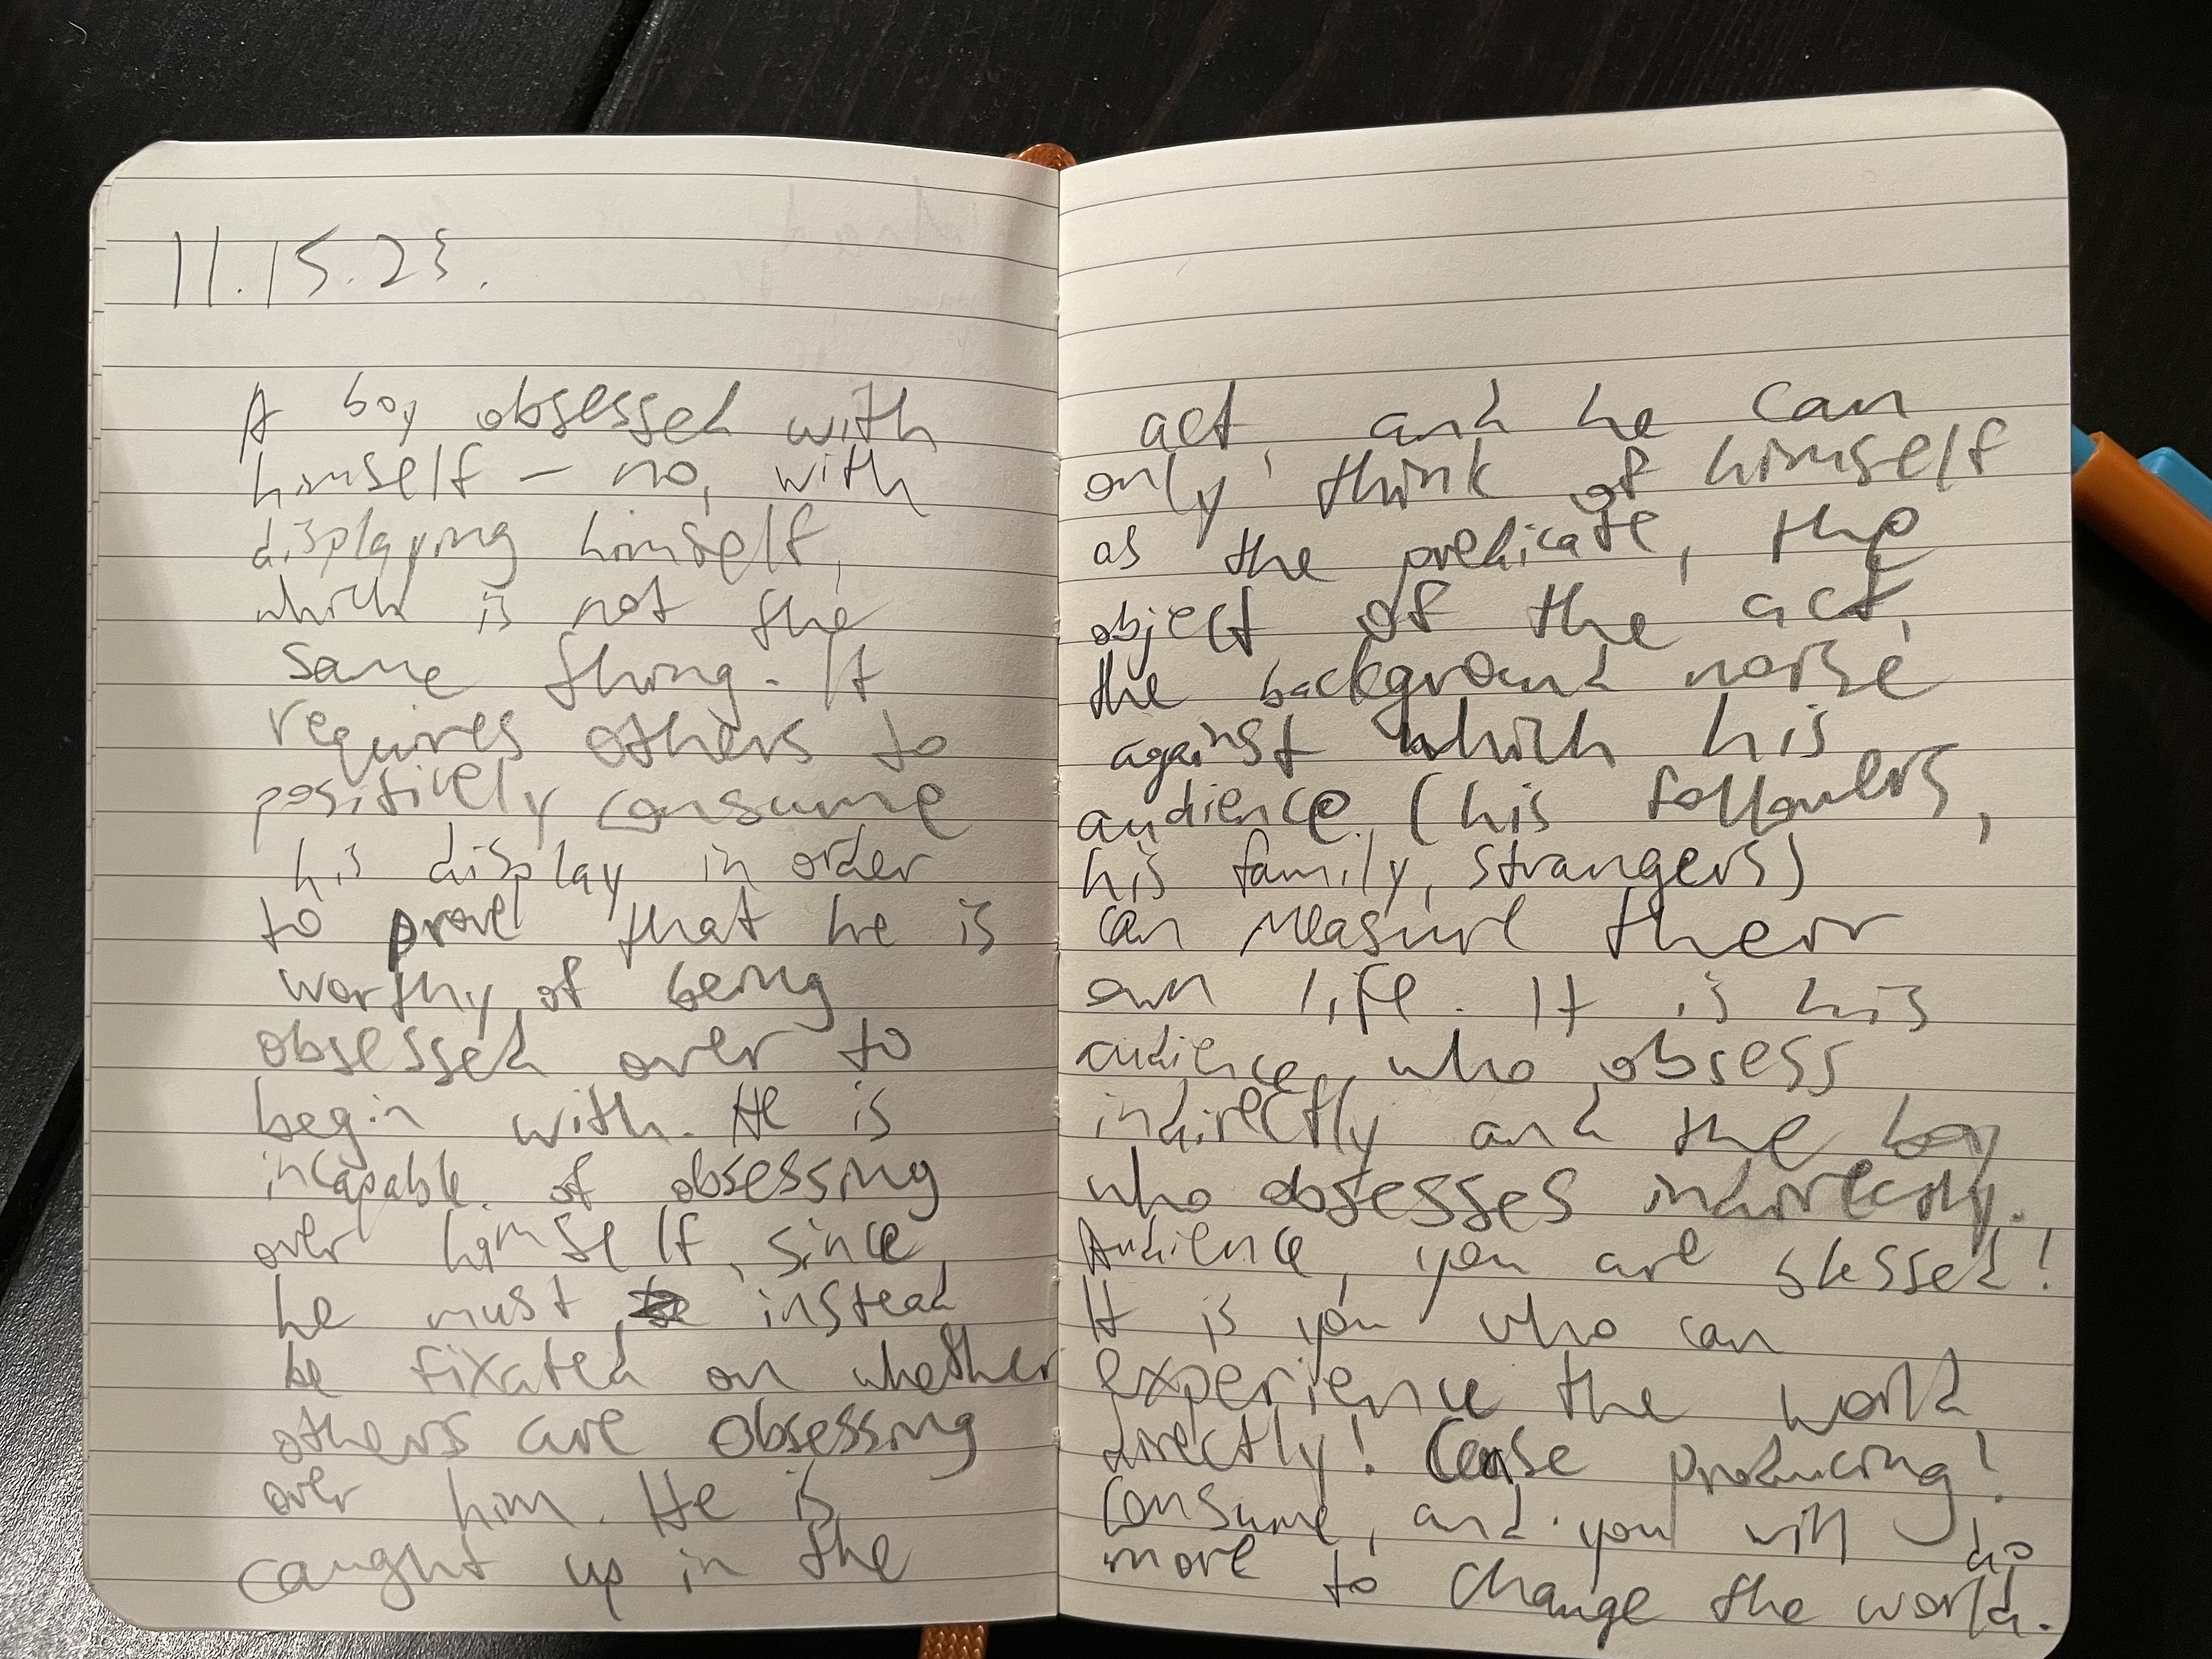 11.15.23.
A boy obsessed with
himself – no, with
displaying himself,
which is not the
same thing. It
requires others to
positively consume
his display in order
to prove that he is
worthy of being
obsessed over to
begin with. He is
incapable of obsessing
over himself, since
he must instead
be fixated on whether
others are obsessing
over him. He is
caught up in the
act, and he can
only think of himself
as the predicate, the
object of the act,
the background noise
against which his
audience (his followers,
his family, strangers)
can measure their
own life. It is his
audience who obsess
indirectly and the boy
who obsesses indirectly.
Audience, you are blessed!
It is you who can
experience the world
directly! Cease producing!
Consume, and you will do
more to change the world.